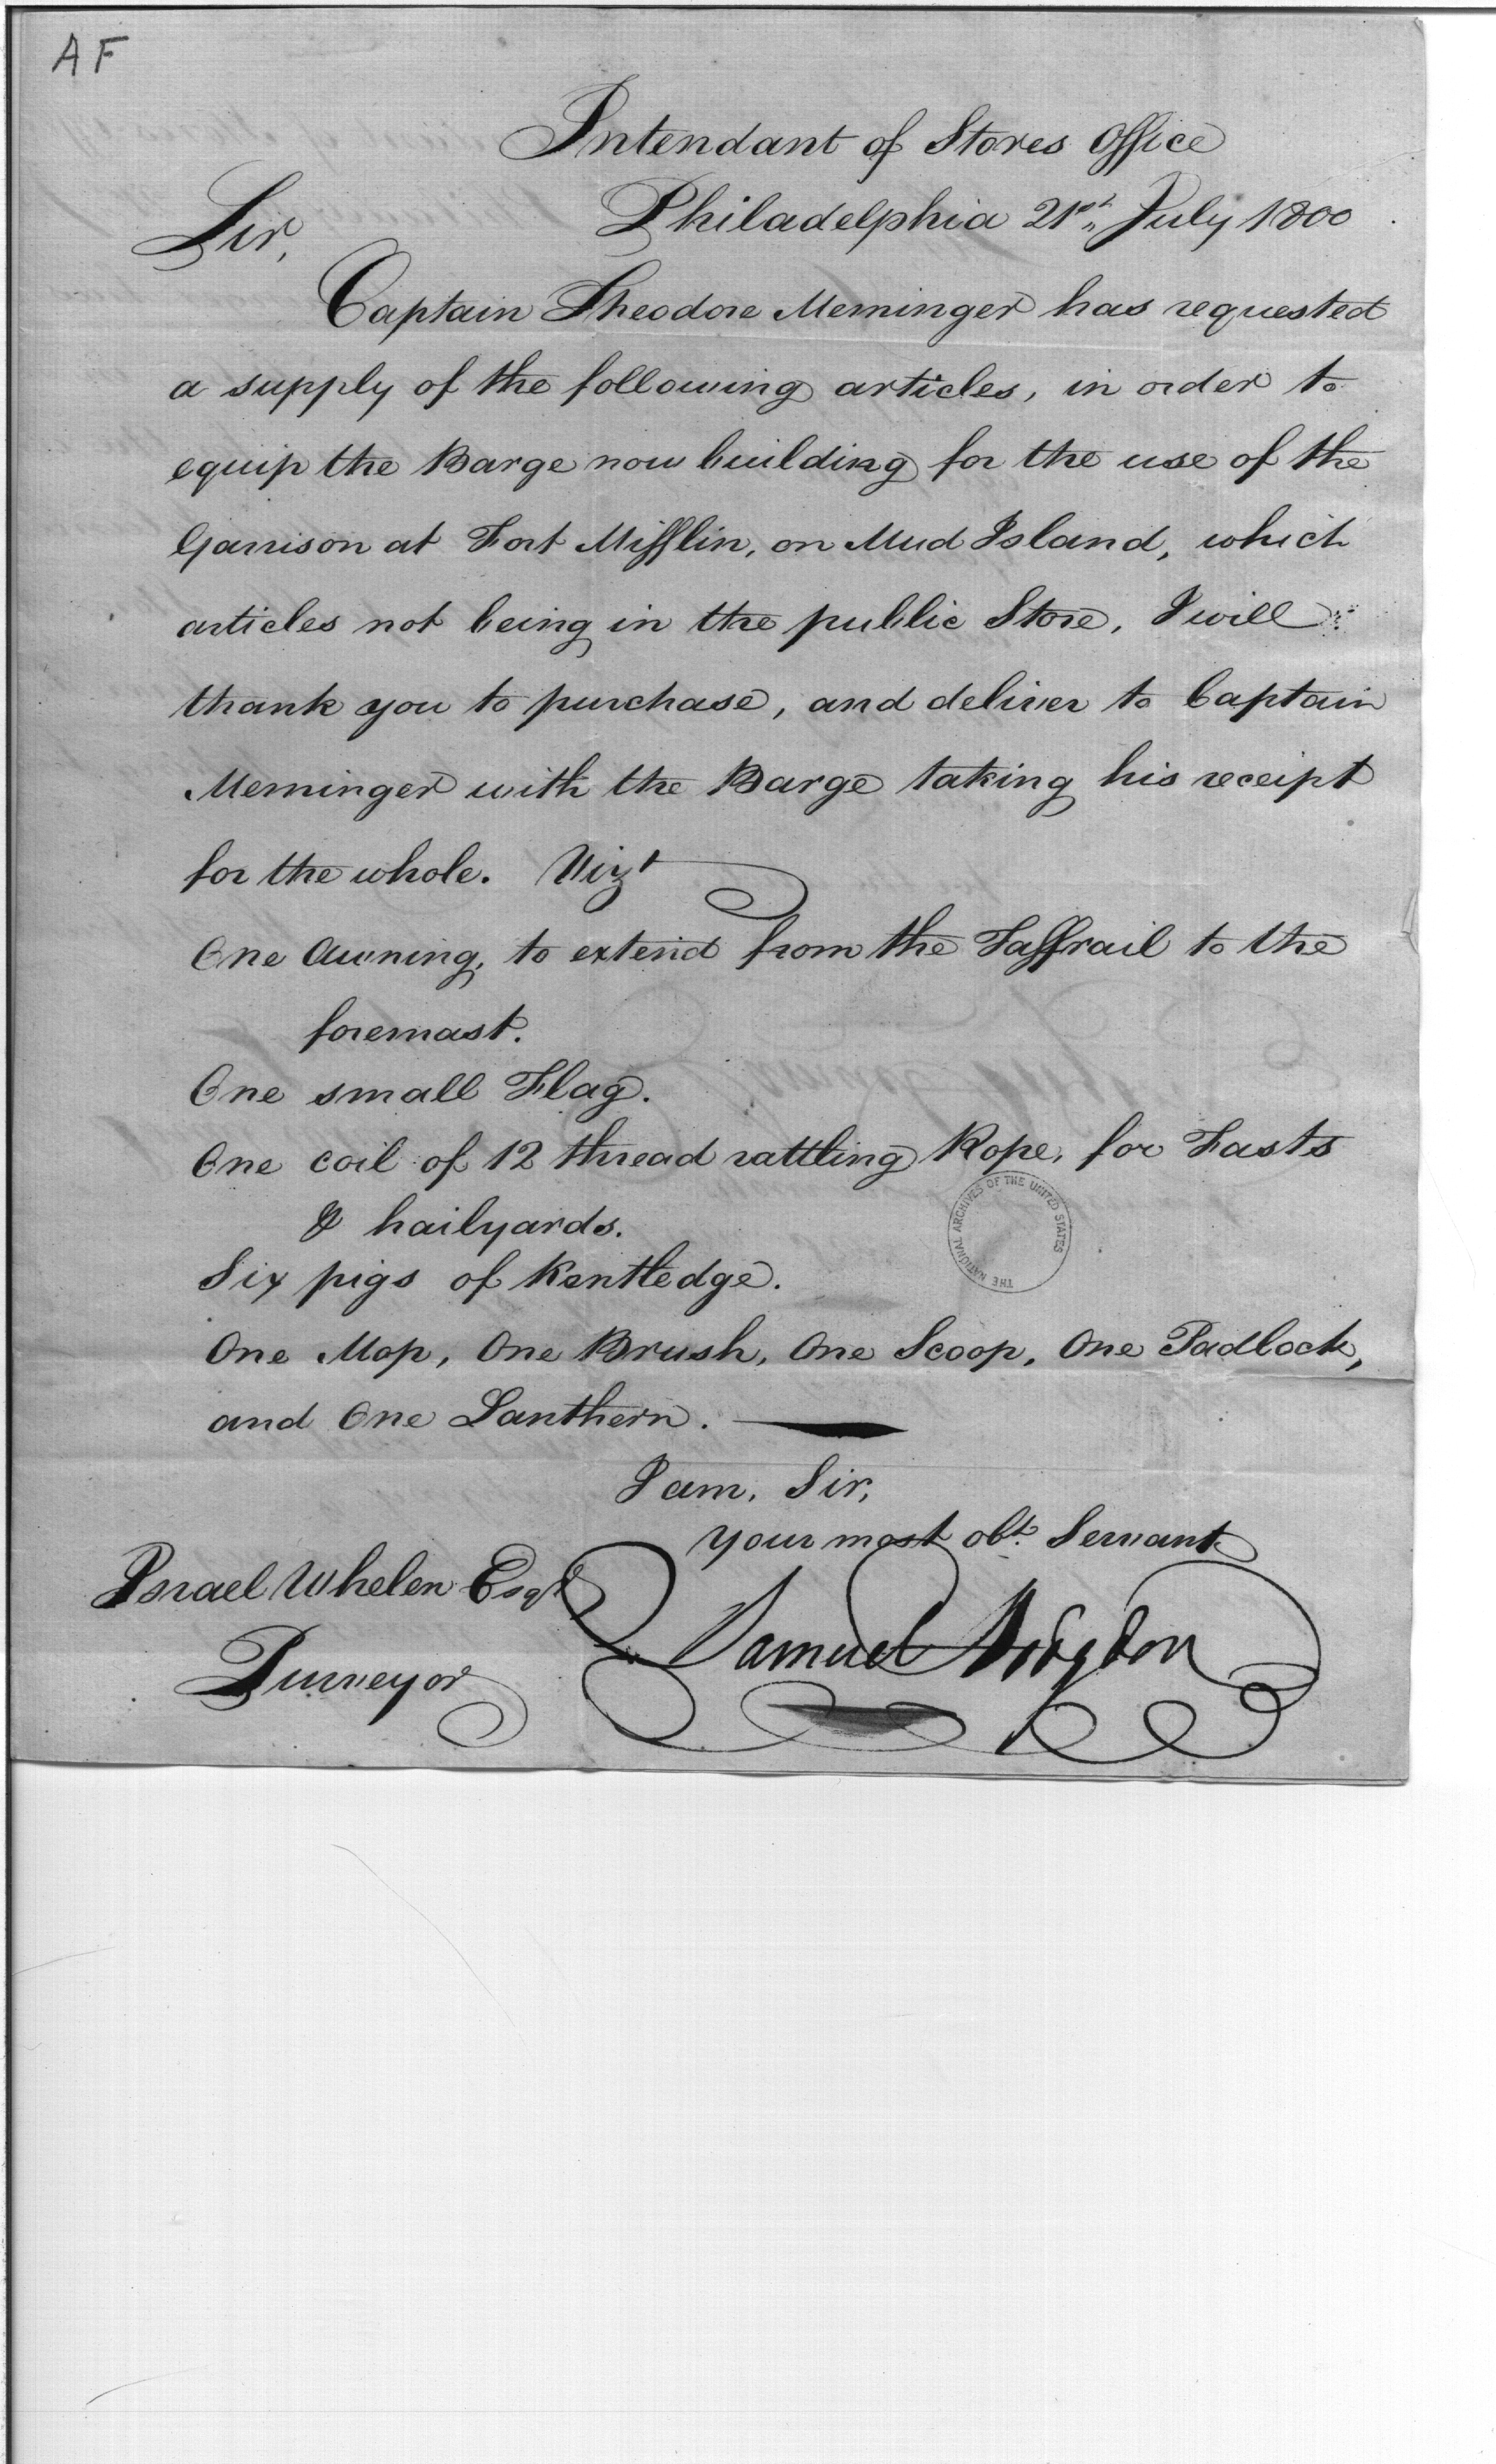 AF
Intendant of Stores Office
Philadelphia 21st July 1800
Sir,
Captain Theodore Meminger has requested
a supply of the following articles, in order to
equip the Barge now building for the use of the
Garrison at Fort Mifflin, on Mud Island, which
articles not being in the public Store, I will
thank you to purchase, and deliver to Captain
Meminger with the Barge taking his receipt
for the whole. Vizt
One Awning, to extend from the Taffrail to the
foremast.
One small Flag.
One coil of 12 thread rattling Rope, for Fasts
& hailyards.
Six pigs of Kentledge.
One Mop, One Brush, One Scoop, One Padlock,
and One Lanthern.
THE NATIONAL ARCHIVES OF THE UNITED STATES
I am, Sir,
your most obt. Servant
Israel Whelen Esqr
Samuel Hodgdon
Purveyor